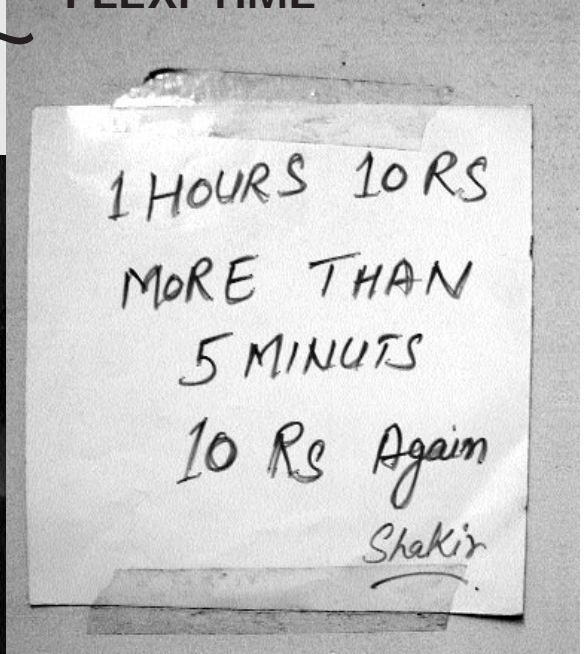 FLEXI TIME
1 HOURS 10 RS
MORE THAN
5 MINUTS
10 Rs Again
Shakir